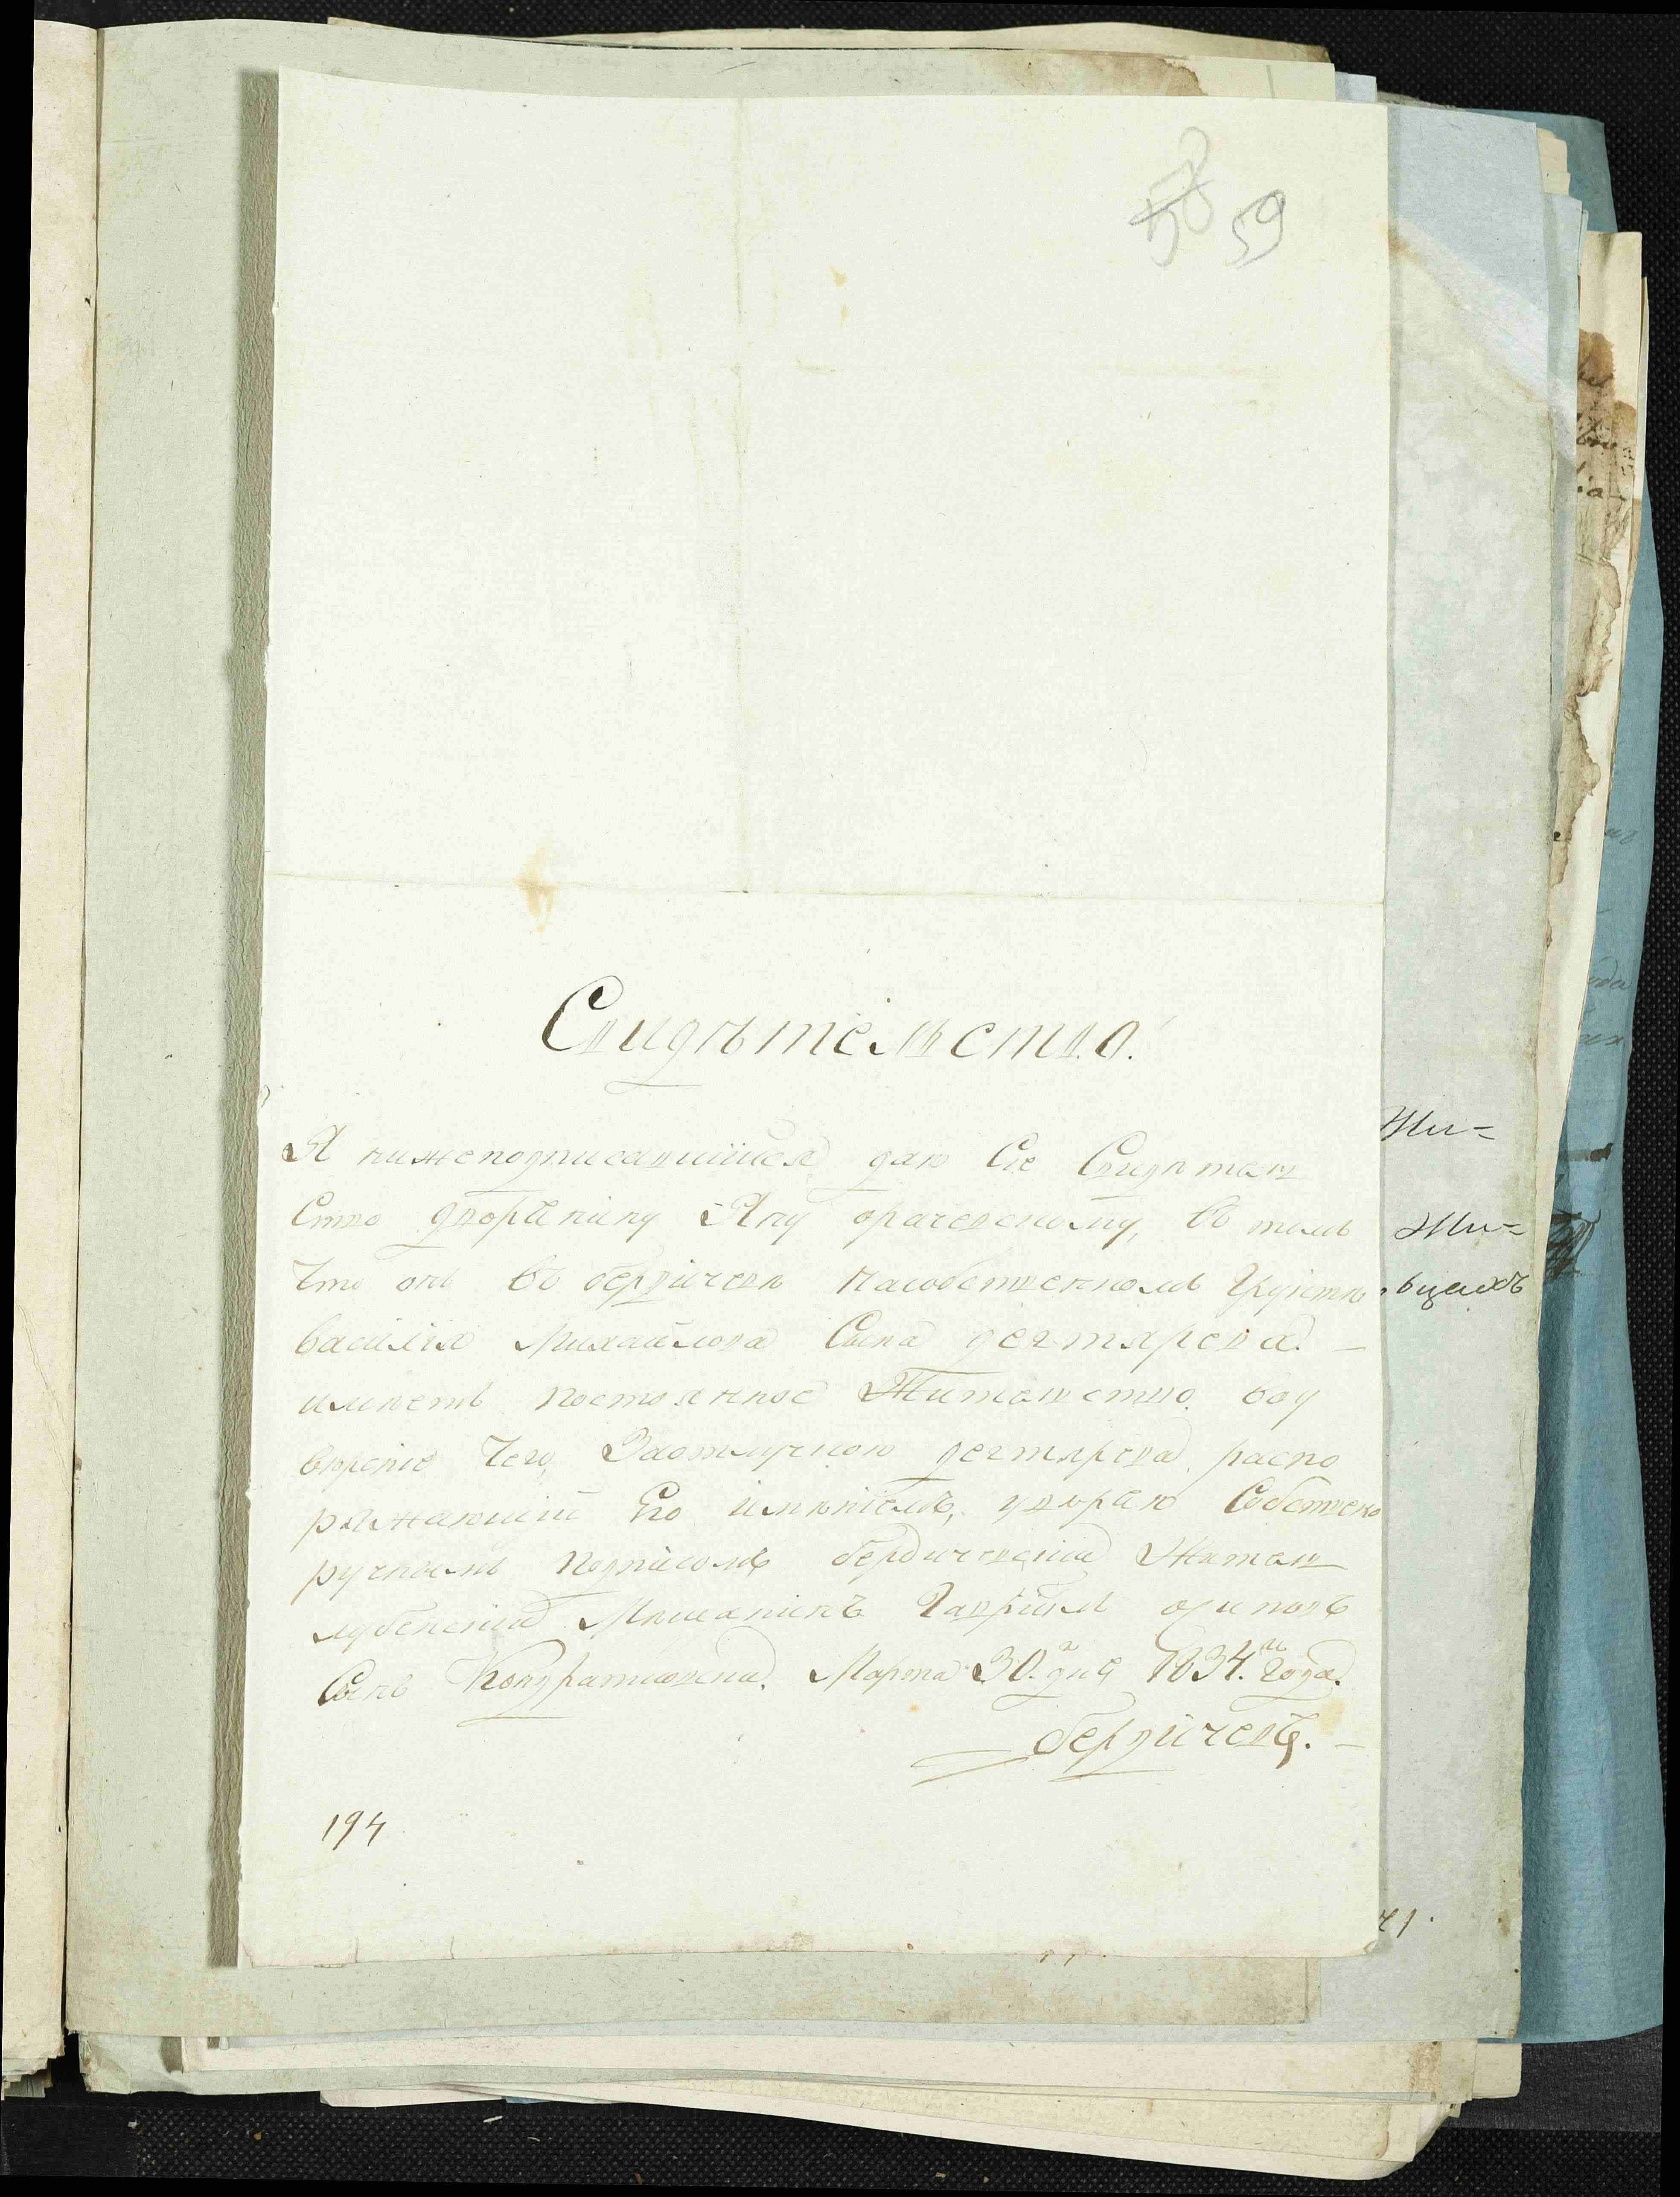 58 59
Свидѣтельство.
Я нижеподписавшийся даю Сіе Свидѣтель
Ство дворянину Яну орачевскому, во томъ
Что онъ во бердичевѣ насобственномъ Грунтѣ
василія михайлова Сына дегтярева. —
имѣетъ постоянное Жительство. воу
вѣреніе Чего, Заотлучкою дегтярева, распо
ряжающий Его имѣніемъ, увѣряю Собствено
ручнымъ подписомъ бердичевский Житель
лубенский Мѣщанинъ Гаврiилъ осиповъ
Сынъ Кондратковский. Марта 30.го дня 1834.го Года.
бердичевъ. —
194
Жи=
Жи=